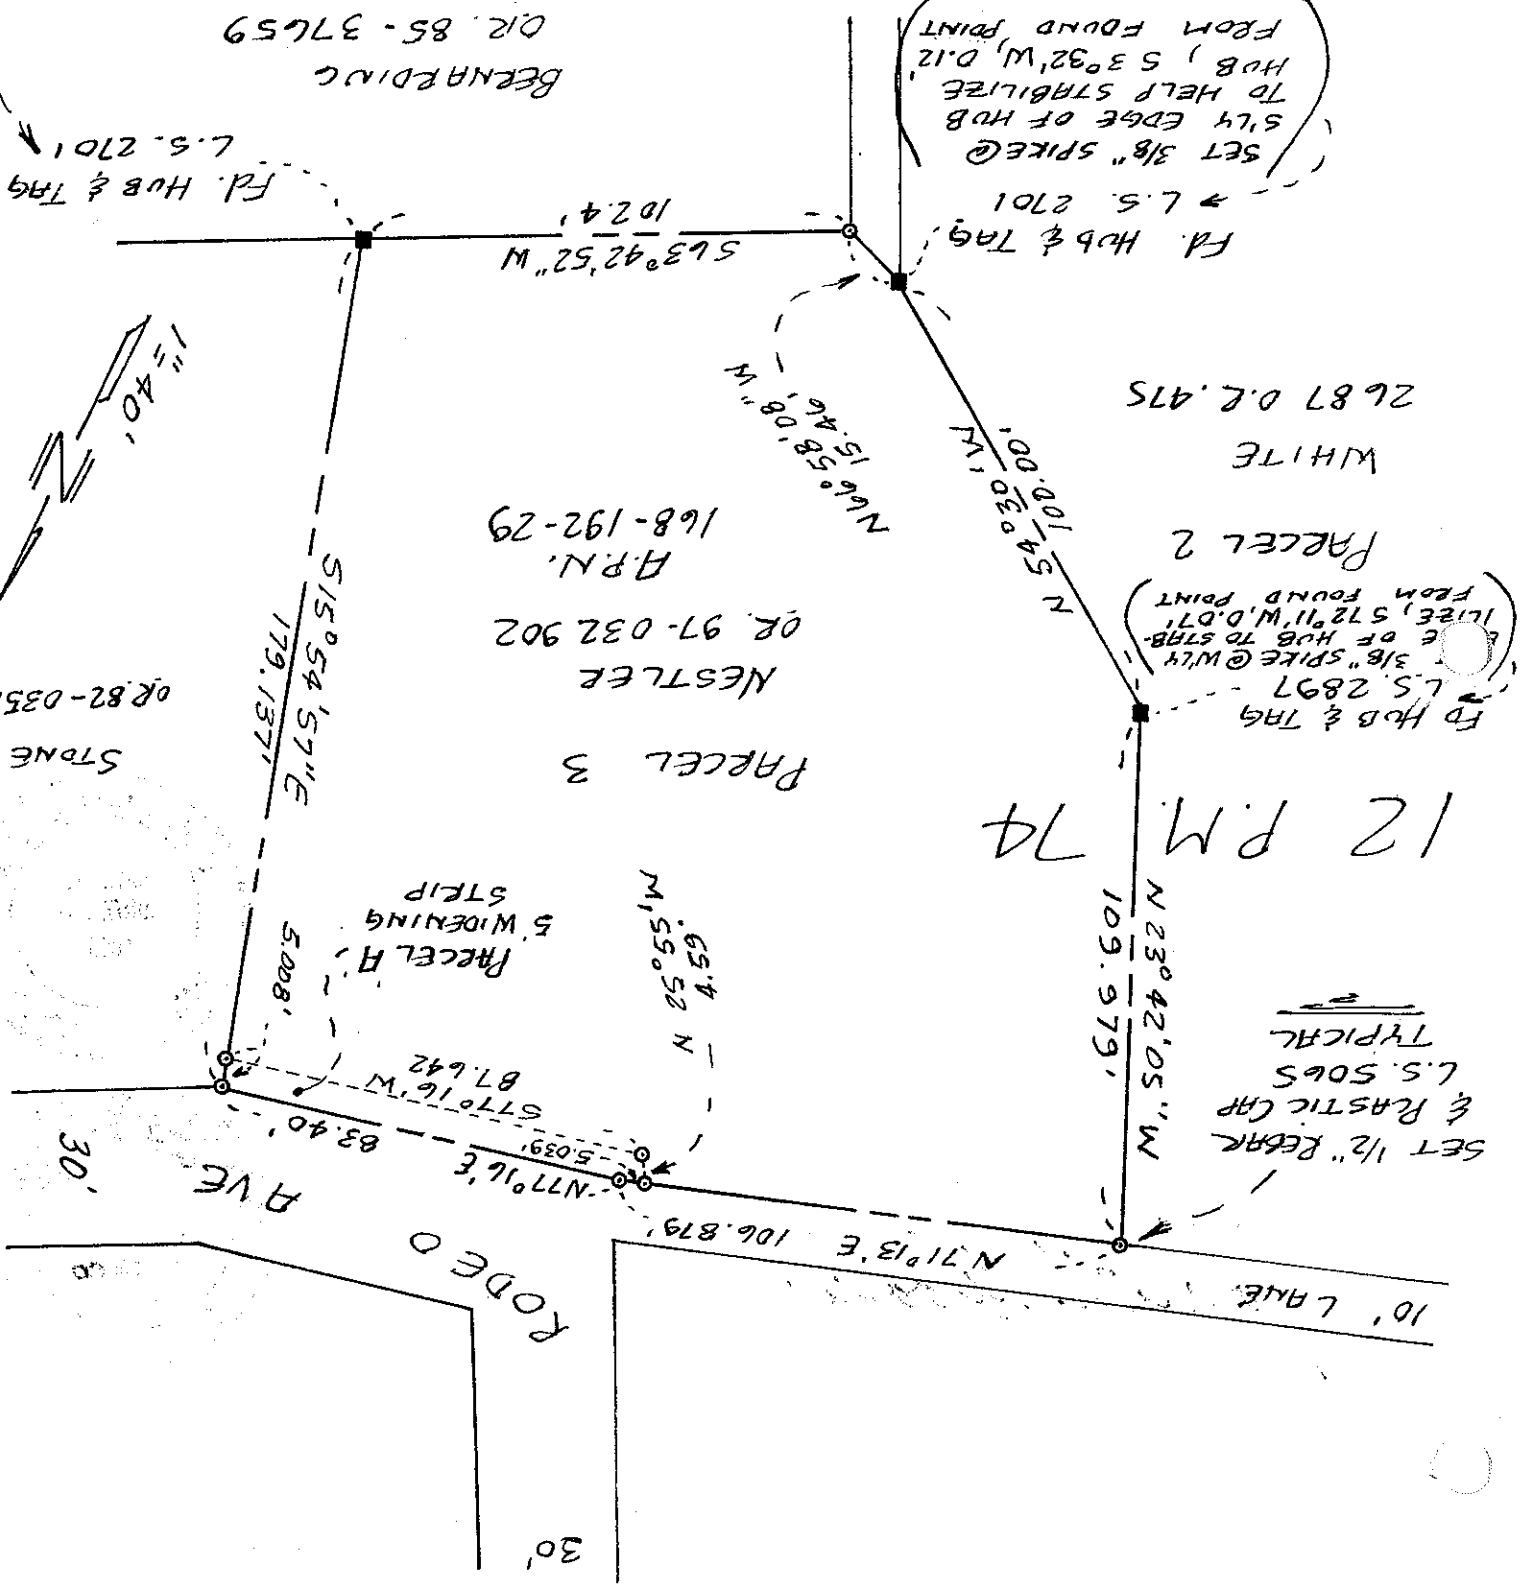 30'
RODEO
AVE
30'
10' LANE
N 71°13' E 106.879'
N77°16' E
83.40'
5.039'
S77°16' W
87.642
SET 1/2" REBAR
& PLASTIC CAP
L.S. 5065
TYPICAL
N 23°42'05" W
109.979'
N 52°55' W
4.59'
PARCEL A
5' WIDENING
STRIP
5.008'
12 P.M. 74
PARCEL 3
NESTLER
O.R. 97-032902
A.P.N.
168-192-29
STONE
S15°54'57"E
179.137'
FD HUB & TAG
L.S. 2897
3/8" SPIKE @ W'LY
OF HUB TO STAB-
ILIZE, S 72°11' W, 0.07'
FROM FOUND POINT
PARCEL 2
WHITE
2687 O.R. 475
N 54°30' W
100.00'
N66°58'08" W
15.46'
1"=40'
N
S63°42'52" W
102.4'
Fd. HUB & TAG
L.S. 2701
SET 3/8" SPIKE @
S'LY EDGE OF HUB
TO HELP STABILIZE
HUB, S 3°32' W, 0.12'
FROM FOUND POINT
Fd. HUB & TAG
L.S. 2701
BERNARDING
O.R. 85-37659